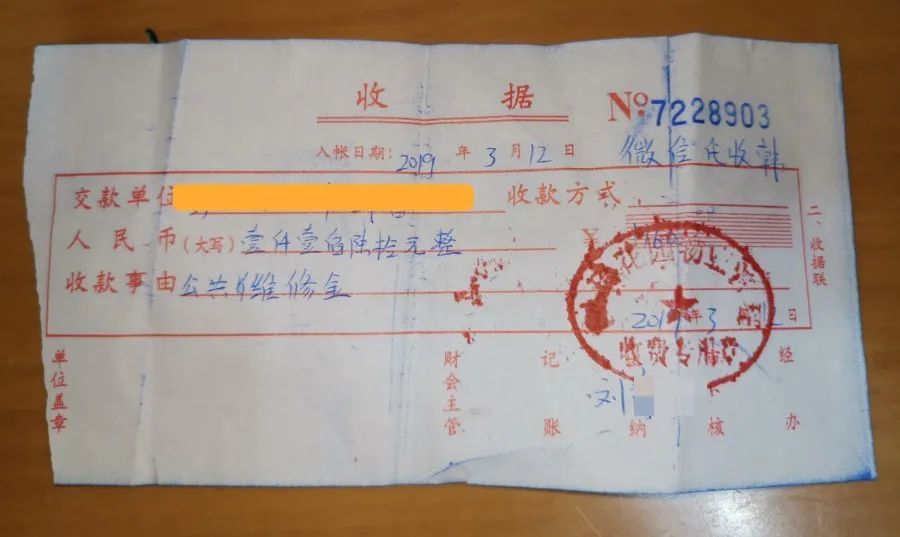 收据
No:7228903
入帐日期:2019年3月12日
微信代收韩
交款单位 收款方式
人民币(大写)壹仟壹佰陆拾元整 ¥
收款事由公共维修金
2019年3月12日
二、收据联
收费专用章
单位盖章 财会主管 记账 出纳 审核 经办
刘